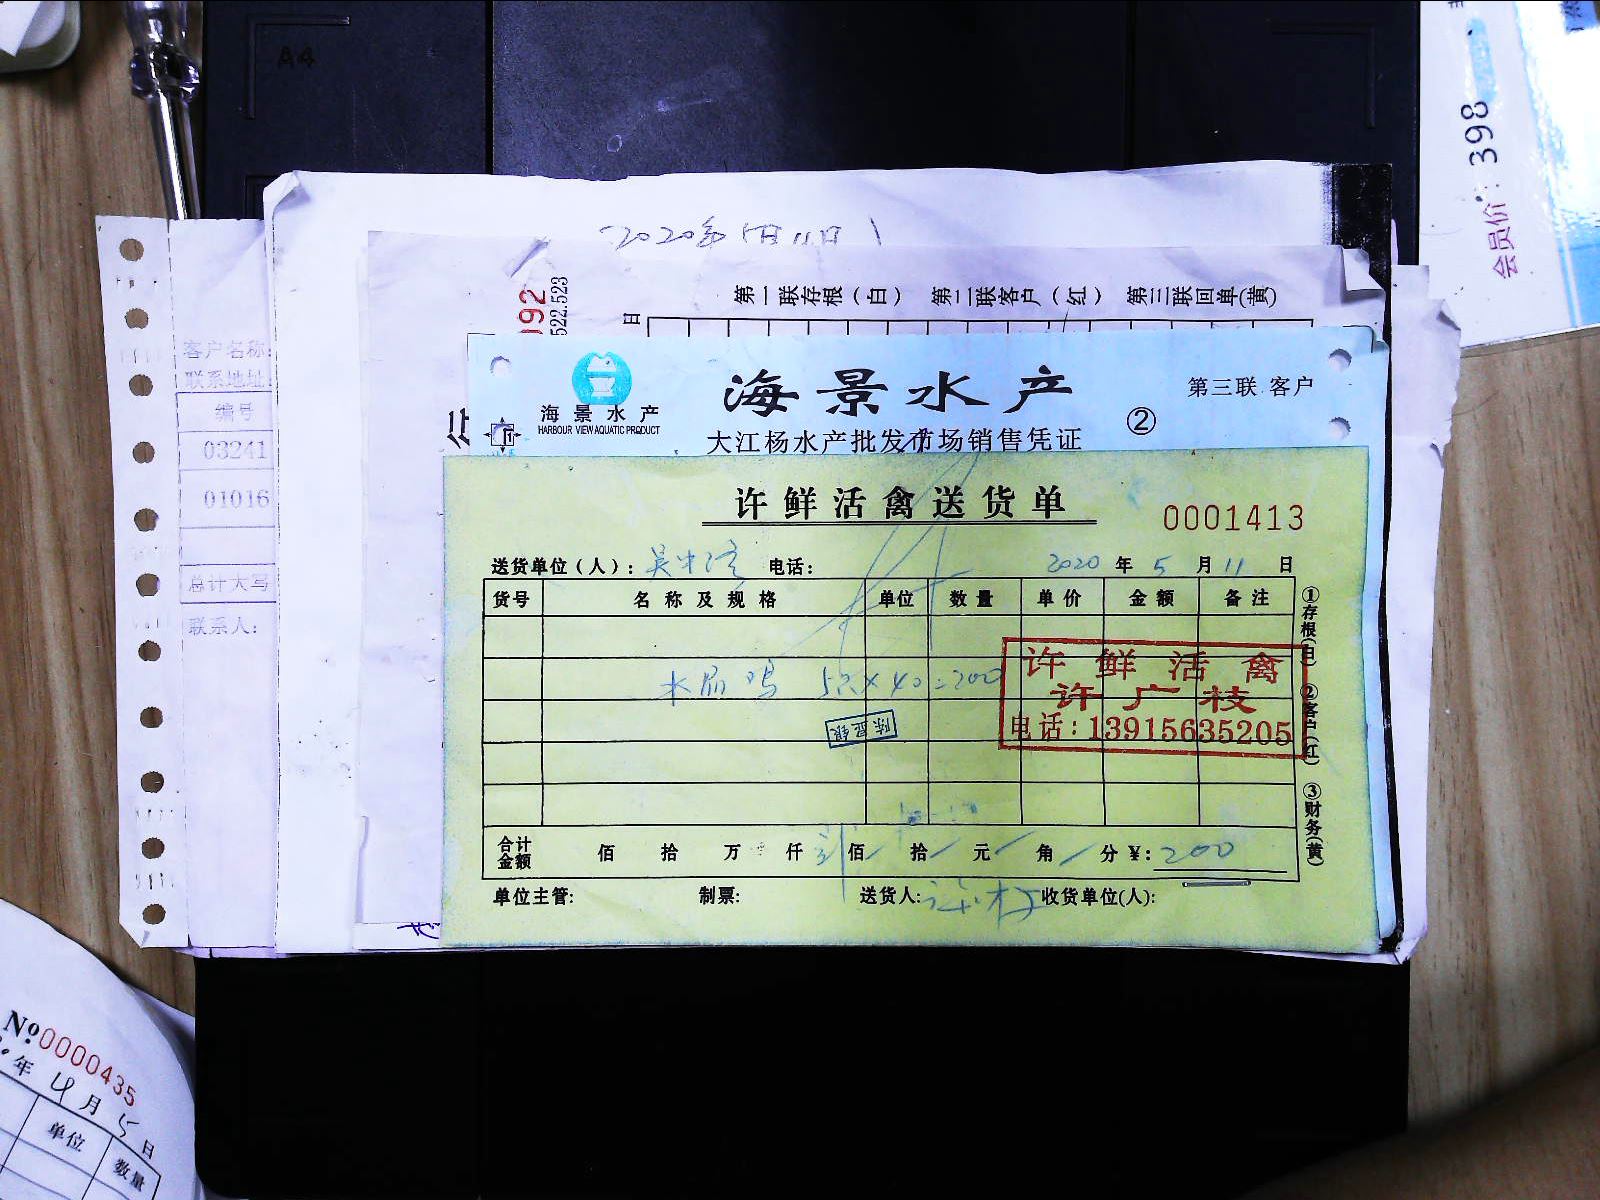 A4
会员价：398
2020年5月11日
192
522.523
第一联存根（白） 第二联客户（红） 第三联回单(黄)
日
客户名称:
联系地址:
编号
03241
01016
总计大写
联系人:
海景水产
HARBOUR VIEW AQUATIC PRODUCT
海景水产
第三联 客户
大江杨水产批发市场销售凭证
②
许鲜活禽送货单
0001413
送货单位（人）: 电话: 2020 年 5 月 11 日
货号 名称及规格 单位 数量 单价 金额 备注
5只×40=200
许鲜活禽
许广枝
电话:13915635205
陈显银
①存根(白) ②客户(红) ③财务(黄)
合计金额 佰 拾 万 仟 佰 拾 元 角 分 ¥: 200
单位主管: 制票: 送货人: 收货单位(人):
№0000435
年 4 月 5 日
单位 数量